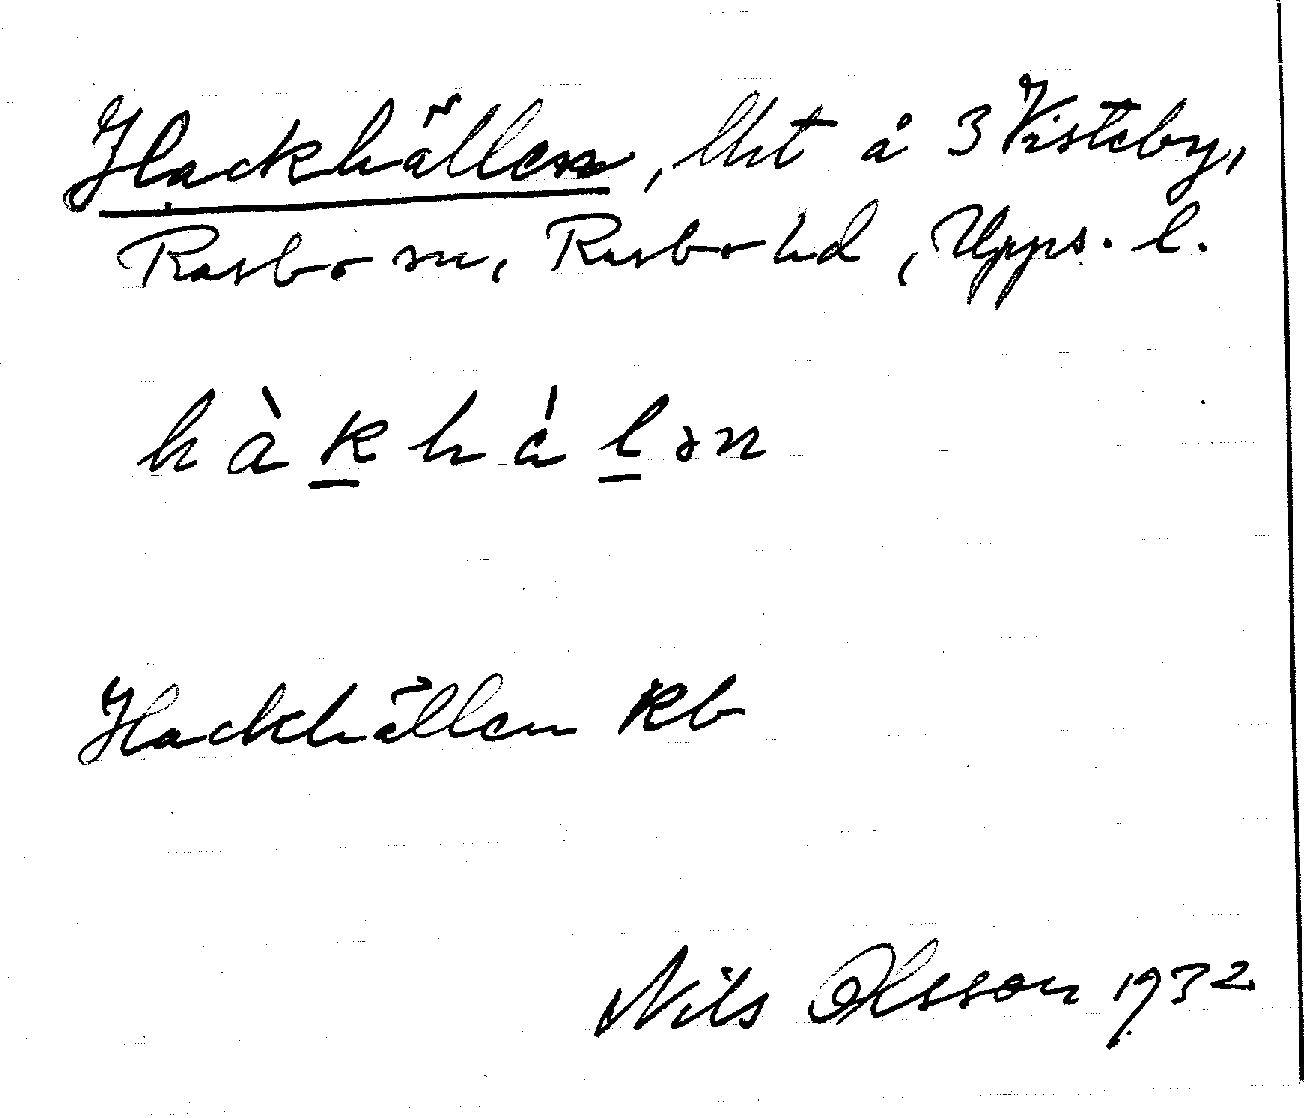 Hackhällen, Utt å 3 Visteby,
Rasbo sn, Rasbo hd, Upps. l.
hàkhálən
Hackhällen Rb
Nils Olsson 1932